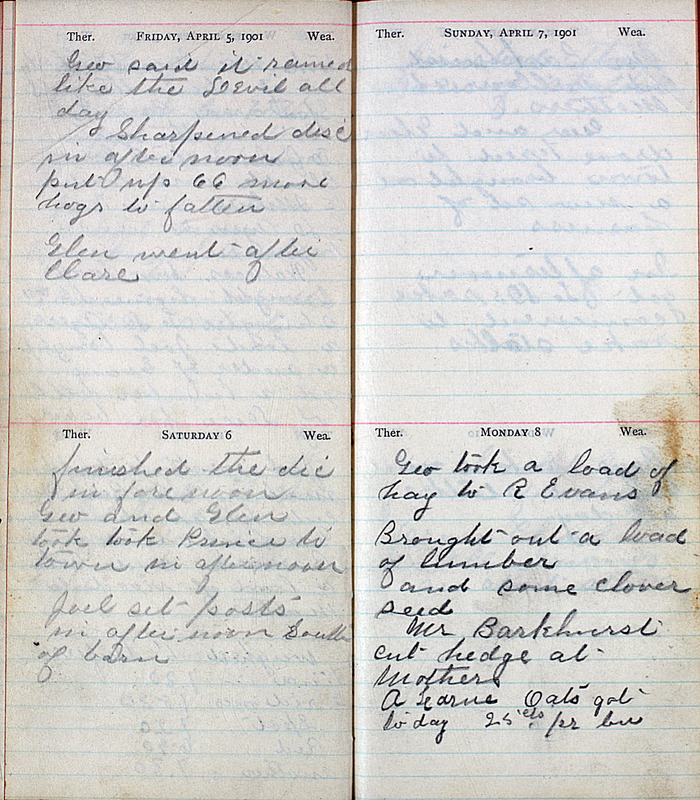 Ther. FRIDAY, APRIL 5, 1901 Wea.
Geo said it rained
like the Devil all
day
Sharpened disc
in after noon
put up 66 more
hogs to fatten
Glen went after
Clare
Ther. SATURDAY 6 Wea.
finished the dic
in fore noon
Geo and Glen
took took Prince to
town in afternoon
Joel set posts
in after noon South
of barn
Ther. SUNDAY, APRIL 7, 1901 Wea.
Ther. MONDAY 8 Wea.
Geo took a load of
hay to R Evans
Brought out a load
of lumber
and some clover
seed
Mr Barkhurst
cut hedge at
Mothers
A Oats got
to day 25 cts pr bu